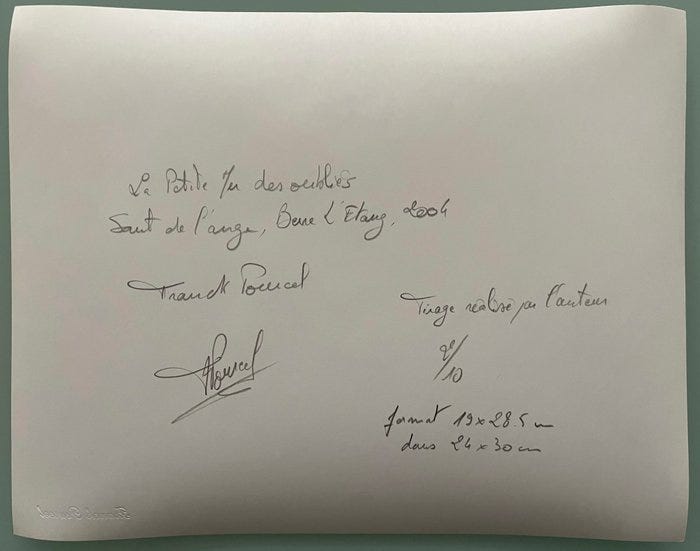 La Petite Mer des oubliés
Saut de l'ange, Berre L'Etang, 2004
Franck Pourcel
Tirage réalisé par l'auteur
FPourcel
2e/10
format 19x28.5 cm
dans 24x30 cm
Franck Pourcel